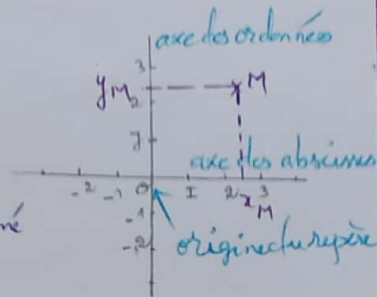 axe des ordonnées
3
yM 2 M
J
axe des abscisses
-2 -1 0 I 2 xM 3
né
-1
-2 origine du repère